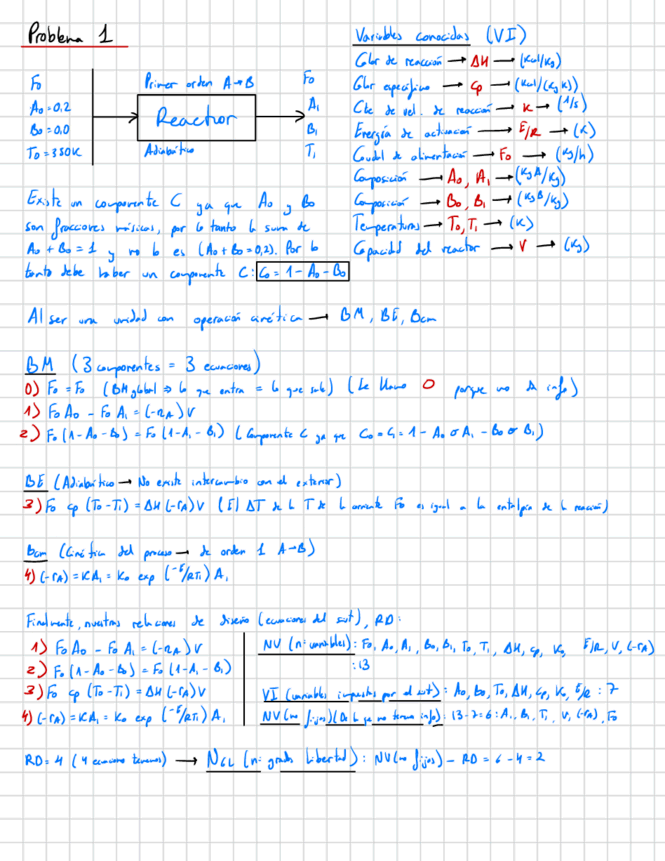 Problema 1
Variables conocidas (VI)
Calor de reacción → ΔH → (Kcal/Kg)
Calor específico → cp → (Kcal/(Kg K))
Cte de vel. de reacción → K → (1/s)
Energía de activación → E/R → (K)
Caudal de alimentación → F₀ → (Kg/h)
Composición → A₀, A₁ → (Kg A/Kg)
Composición → B₀, B₁ → (Kg B/Kg)
Temperaturas → T₀, T₁ → (K)
Capacidad del reactor → V → (Kg)
F₀
A₀=0,2
B₀=0,0
T₀=350K
Primer orden A→B
Reactor
Adiabático
F₀
A₁
B₁
T₁
Existe un componente C ya que A₀ y B₀
son fracciones másicas, por lo tanto la suma de
A₀ + B₀ = 1 y no lo es (A₀+B₀=0,2). Por lo
tanto debe haber un componente C: C₀ = 1 - A₀ - B₀
Al ser una unidad con operación cinética → BM, BE, Bcm
BM (3 componentes = 3 ecuaciones)
0) F₀ = F₀ (BM global ⇒ lo que entra = lo que sale) (Le llamo 0 porque no da info)
1) F₀A₀ - F₀A₁ = (-rA)V
2) F₀(1-A₀-B₀) = F₀(1-A₁-B₁) (Componente C ya que C₀ = C₁ = 1 - A₀ o A₁ - B₀ o B₁)
BE (Adiabático → No existe intercambio con el exterior)
3) F₀ cp (T₀-T₁) = ΔH(-rA)V (El ΔT de la T de la corriente F₀ es igual a la entalpía de la reacción)
Bcm (Cinética del proceso → de orden 1 A→B)
4) (-rA) = KA₁ = K₀ exp (-E/RT₁) A₁
Finalmente, nuestras relaciones de diseño (ecuaciones del sist), RD:
1) F₀A₀ - F₀A₁ = (-rA)V
2) F₀(1-A₀-B₀) = F₀(1-A₁-B₁)
3) F₀ cp (T₀-T₁) = ΔH(-rA)V
4) (-rA) = KA₁ = K₀ exp (-E/RT₁) A₁
NV (nº variables): F₀, A₀, A₁, B₀, B₁, T₀, T₁, ΔH, cp, K₀, E/R, V, (-rA)
: 13
VI (variables impuestas por el sist): A₀, B₀, T₀, ΔH, cp, K₀, E/R : 7
NV(no fijos)(De la que no tienen info): 13-7=6: A₁, B₁, T₁, V, (-rA), F₀
RD = 4 (4 ecuaciones tenemos) → NGL (nº grados libertad): NV(no fijos) - RD = 6 - 4 = 2